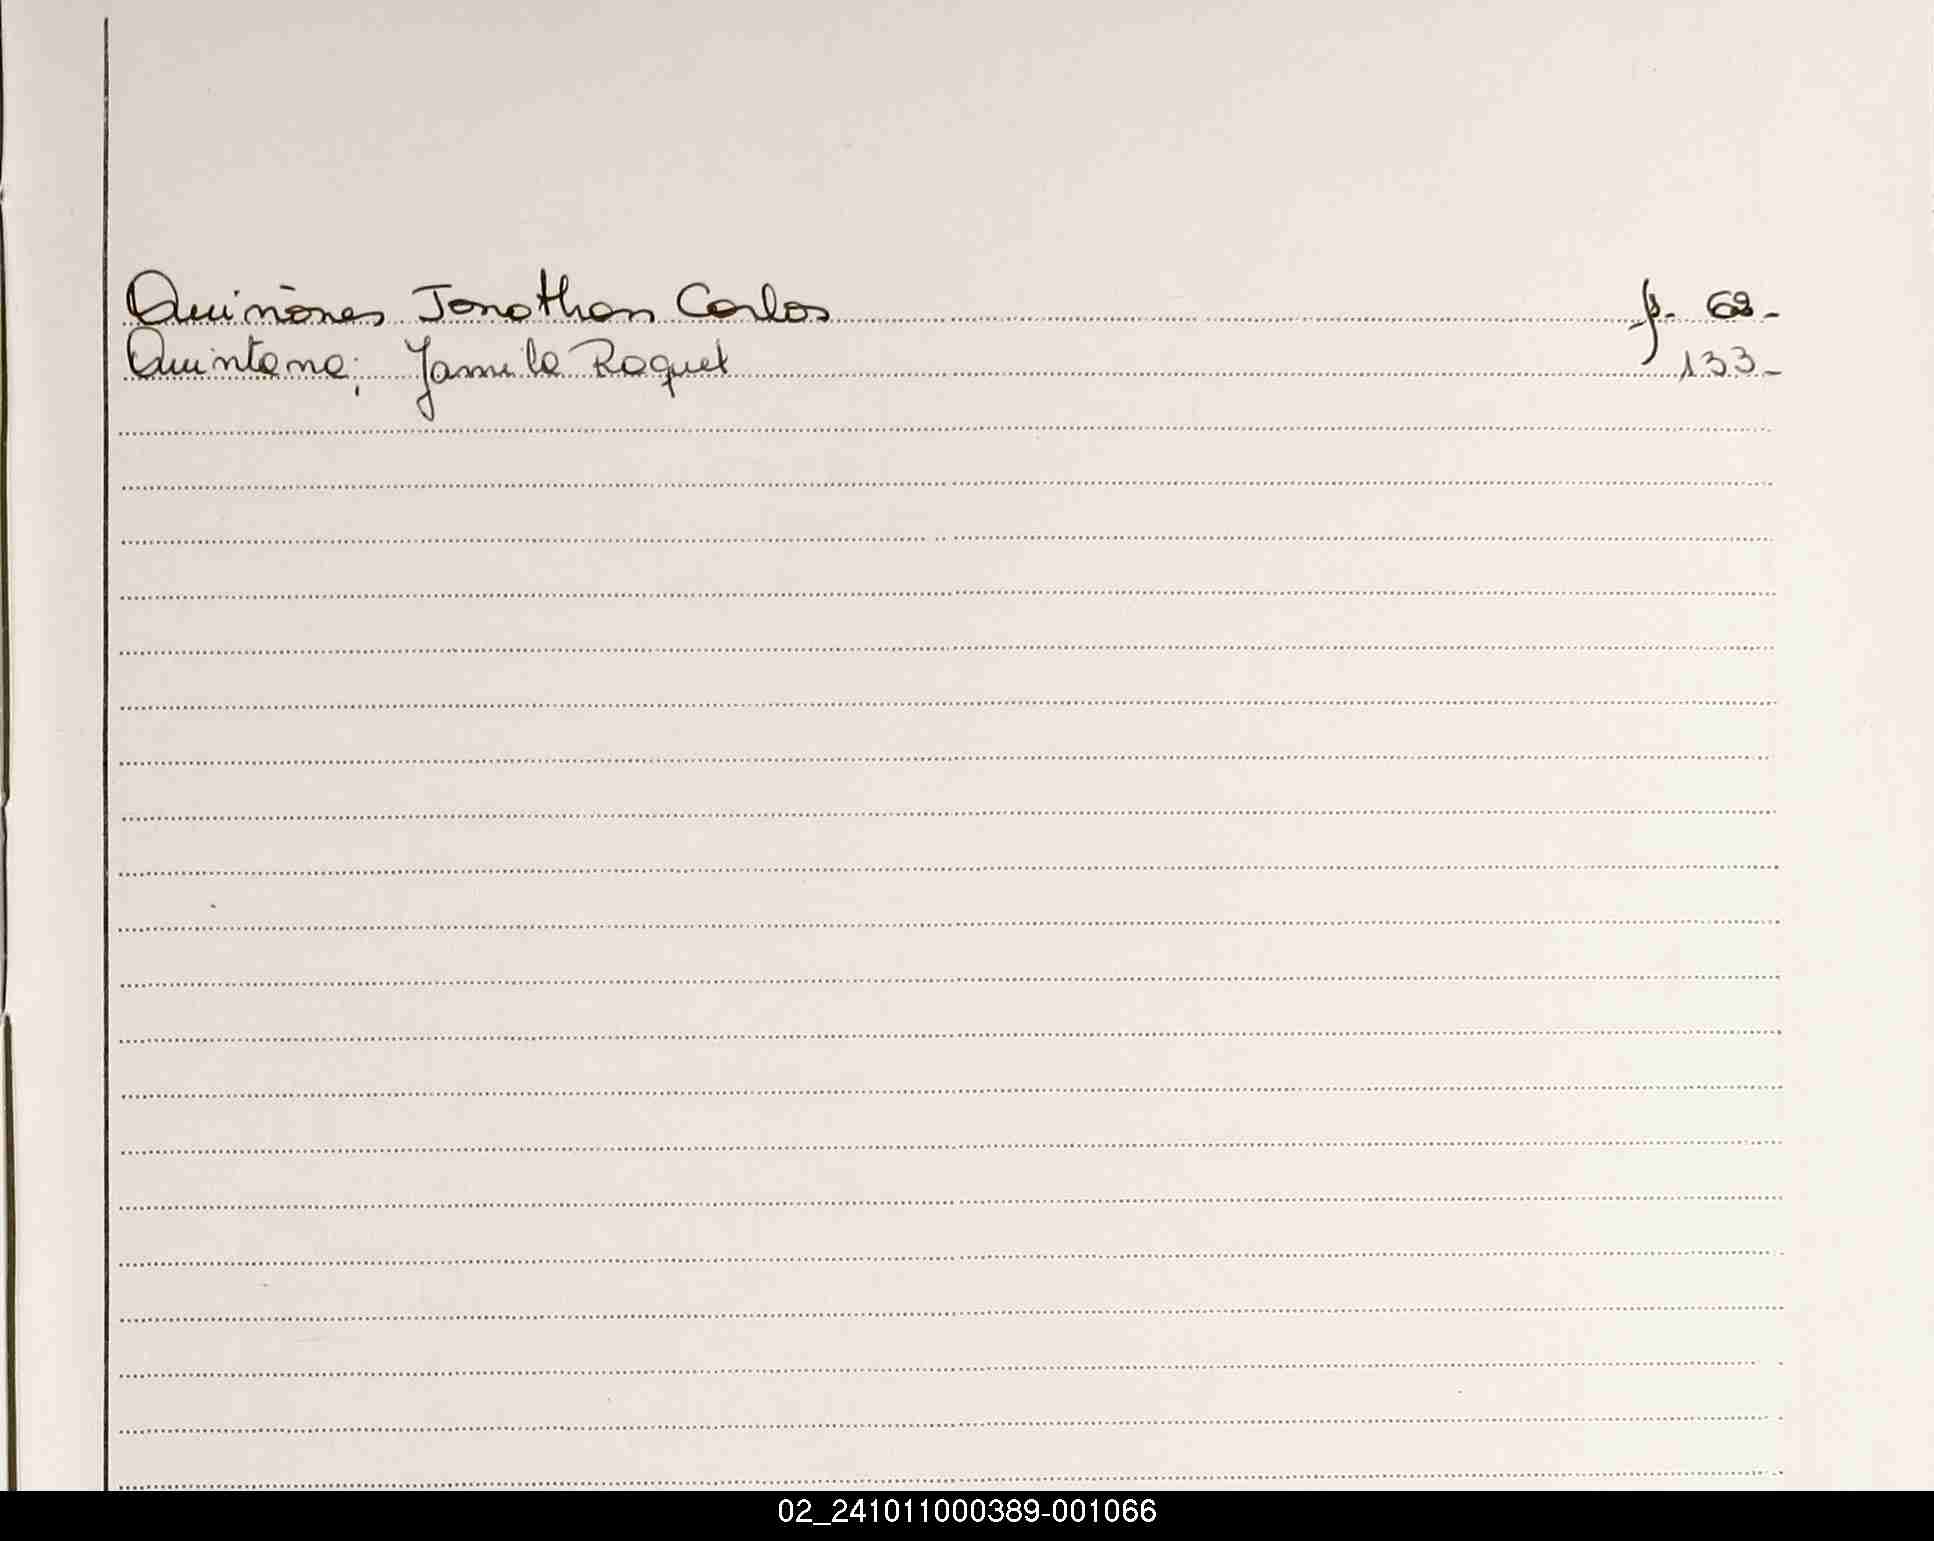 Quiñones Jonathan Carlos p. 62-
Quintana; Yamila Raquel 133-
02_241011000389-001066